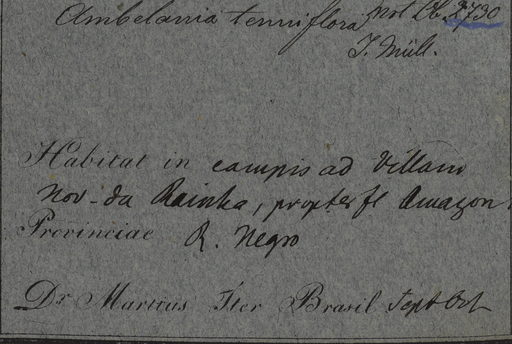 Ambelania tenuiflora
J. Müll.
Habitat in campis ad Villam
Nov. da Rainha, propter fl Amazon
Provinciae R. Negro
Dr Martius Iter Brasil Sept Oct